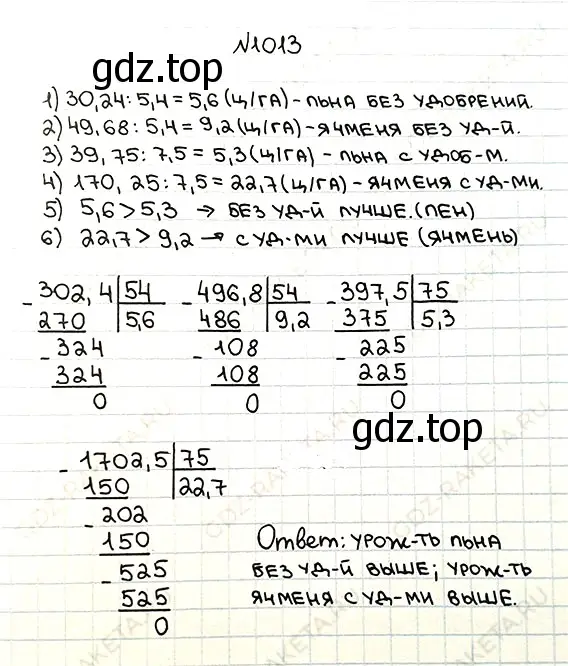 №1013
gdz.top
1) 30,24 : 5,4 = 5,6 (ц/га) - льна без удобрений.
2) 49,68 : 5,4 = 9,2 (ц/га) - ячменя без уд-й.
3) 39,75 : 7,5 = 5,3 (ц/га) - льна с удоб-м.
4) 170,25 : 7,5 = 22,7 (ц/га) - ячменя с уд-ми.
5) 5,6 > 5,3 → без уд-й лучше. (лен)
6) 22,7 > 9,2 → с уд-ми лучше (ячмень)
- 302,4 | 54 - 496,8 | 54 - 397,5 | 75
270 | 5,6 486 | 9,2 375 | 5,3
- 324 - 108 - 225
324 108 225
0 0 0
gdz.top
- 1702,5 | 75
150 | 22,7
- 202
150 Ответ: урож-ть льна
- 525 без уд-й выше; урож-ть
525 ячменя с уд-ми выше.
0